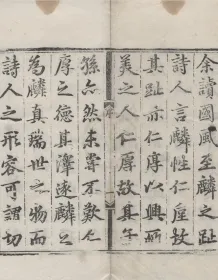 余讀國風至麟之趾
詩人言麟性仁厚故
其趾亦仁厚以興而
美之人仁厚故其子
孫亦然未嘗不歎仁
厚之德其澤遠麟之
為麟真瑞世之物而
詩人之形容可謂切